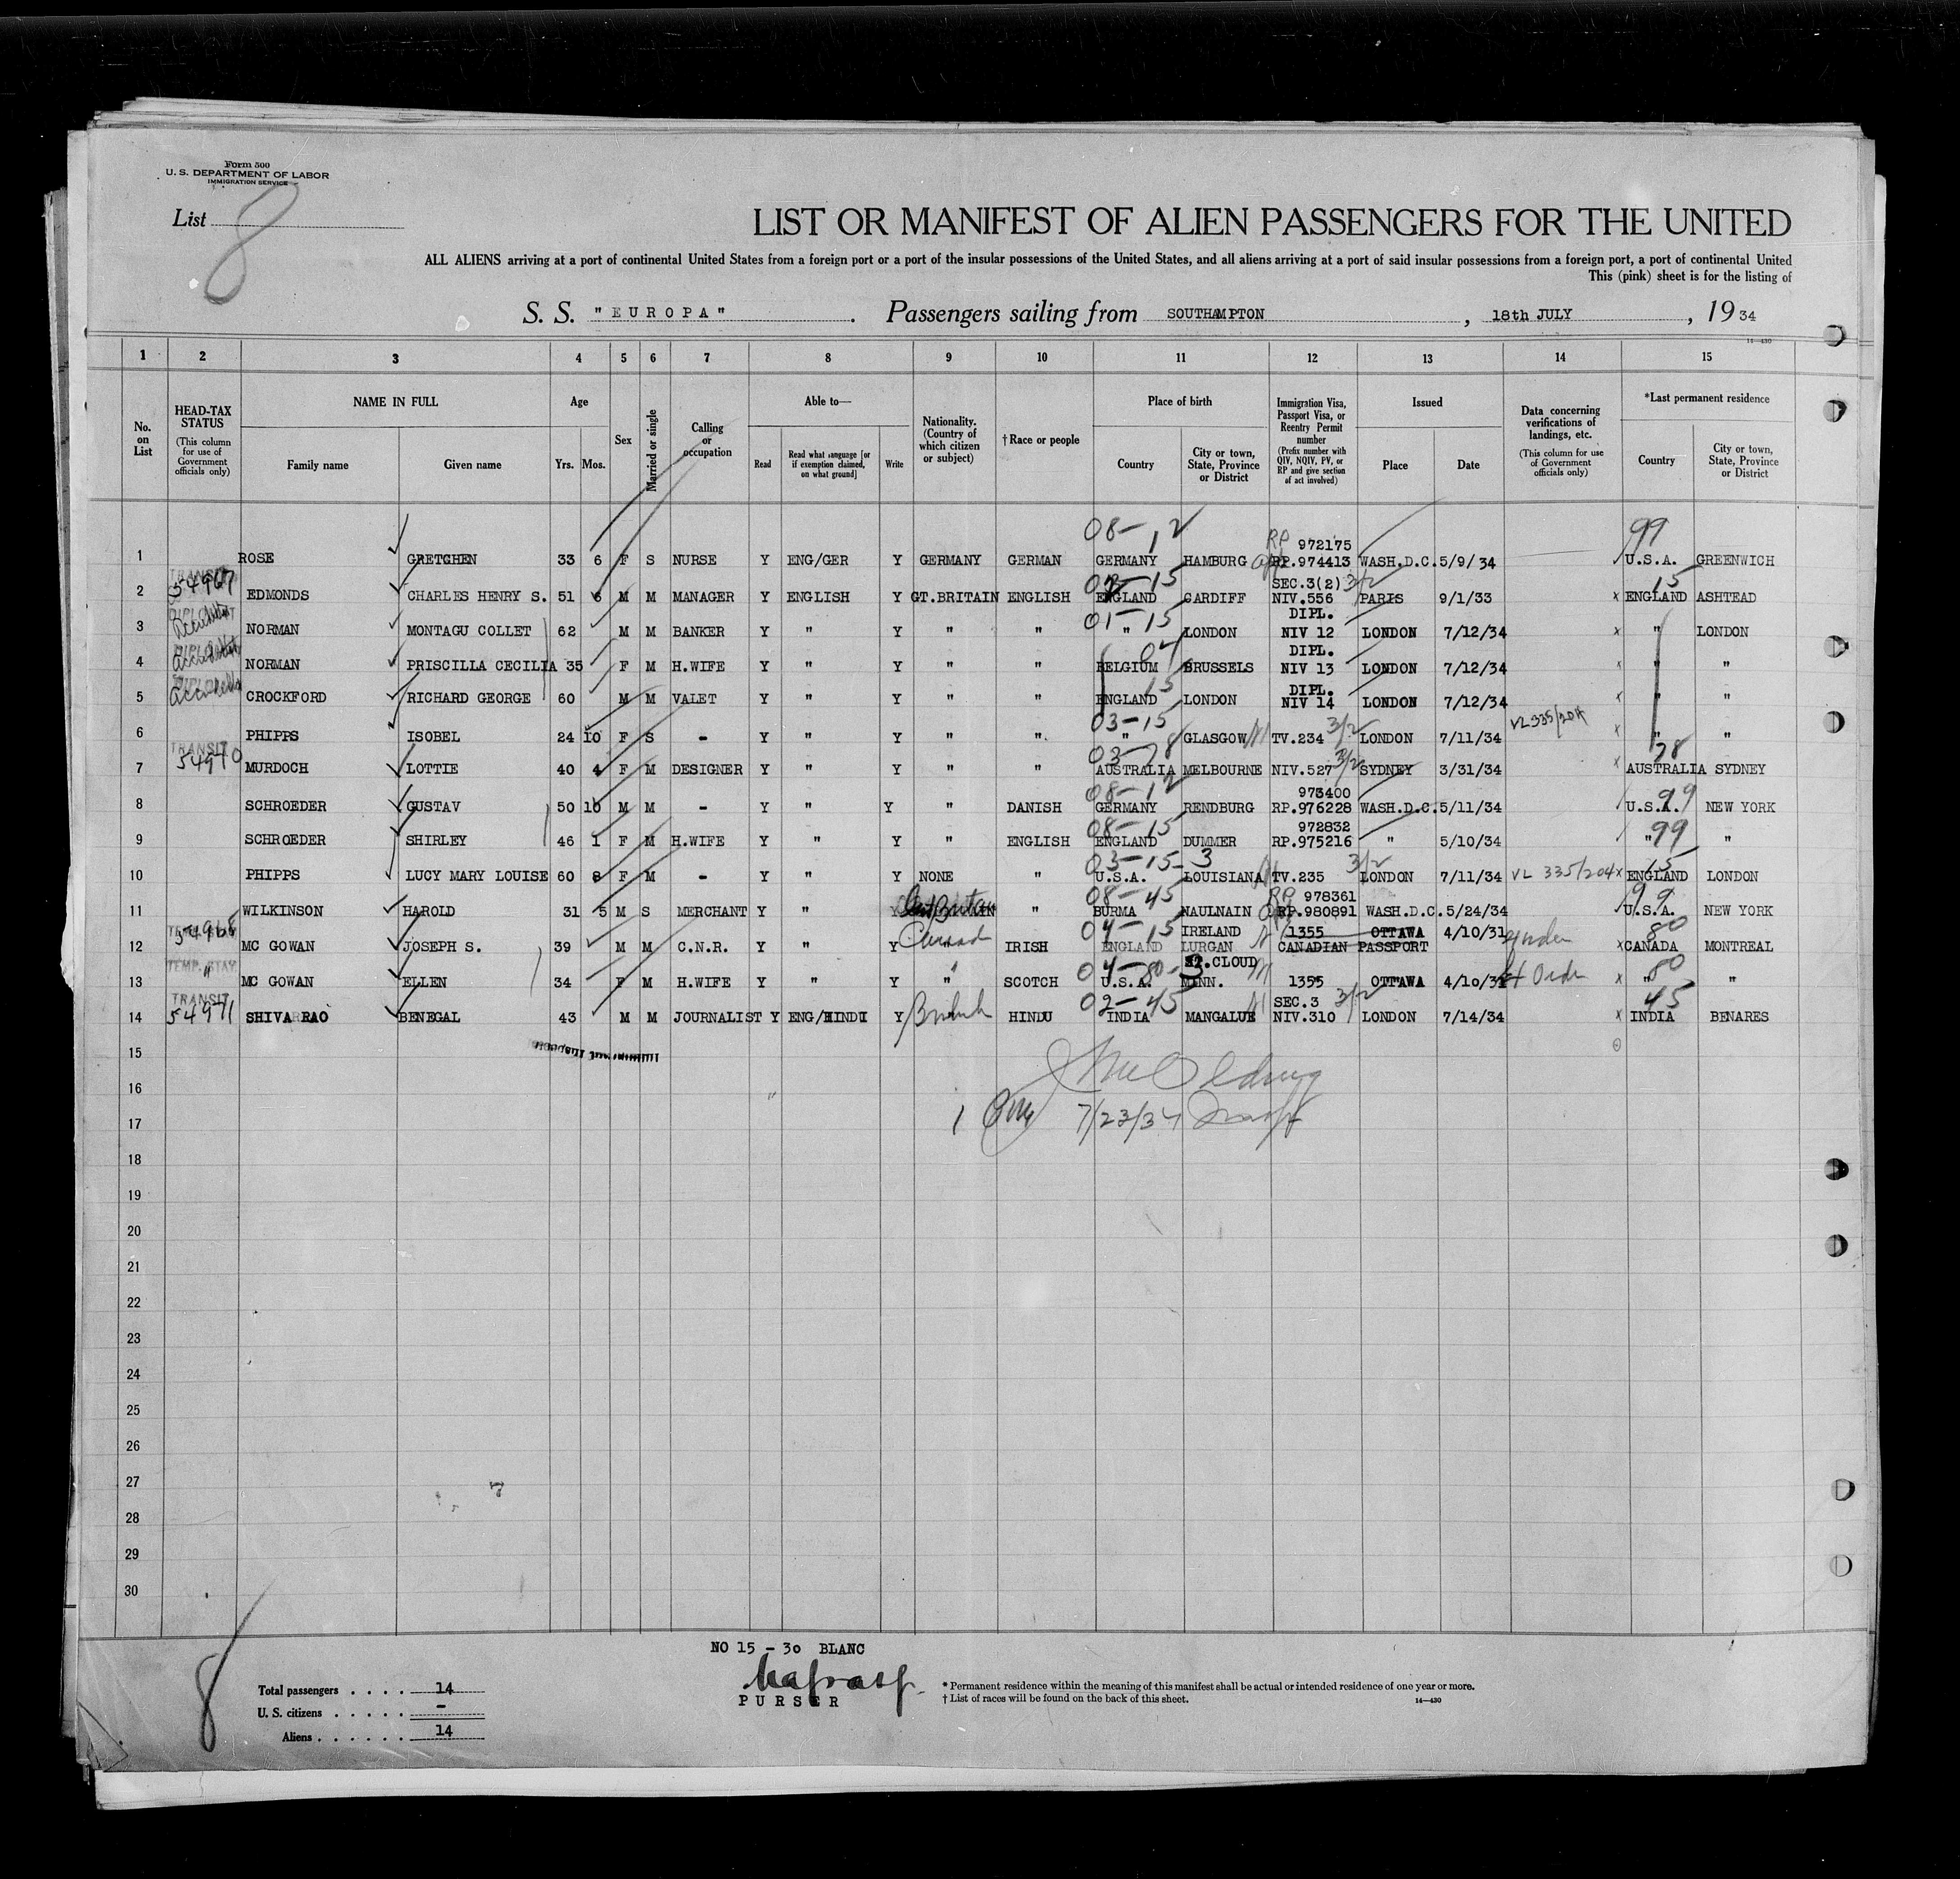 Form 500
U. S. DEPARTMENT OF LABOR
IMMIGRATION SERVICE
List 8
LIST OR MANIFEST OF ALIEN PASSENGERS FOR THE UNITED
ALL ALIENS arriving at a port of continental United States from a foreign port or a port of the insular possessions of the United States, and all aliens arriving at a port of said insular possessions from a foreign port, a port of continental United
This (pink) sheet is for the listing of
S. S. "EUROPA" . Passengers sailing from SOUTHAMPTON , 18th JULY , 19 34
14—430
1 2 3 4 5 6 7 8 9 10 11 12 13 14 15
No. on List
HEAD-TAX STATUS (This column for use of Government officials only)
NAME IN FULL
Family name Given name
Age
Yrs. Mos.
Sex
Married or single
Calling or occupation
Able to—
Read Read what language [or if exemption claimed, on what ground] Write
Nationality. (Country of which citizen or subject)
† Race or people
Place of birth
Country City or town, State, Province or District
Immigration Visa, Passport Visa, or Reentry Permit number (Prefix number with QIV, NQIV, PV, or RP and give section of act involved)
Issued
Place Date
Data concerning verifications of landings, etc. (This column for use of Government officials only)
*Last permanent residence
Country City or town, State, Province or District
08-12 RP 972175 99
1 ROSE GRETCHEN 33 6 F S NURSE Y ENG/GER Y GERMANY GERMAN GERMANY HAMBURG RP.974413 WASH.D.C. 5/9/34 U.S.A. GREENWICH
TRANSIT 54967 15 SEC.3(2) 3/2 15
2 EDMONDS CHARLES HENRY S. 51 6 M M MANAGER Y ENGLISH Y GT.BRITAIN ENGLISH ENGLAND CARDIFF NIV.556 PARIS 9/1/33 x ENGLAND ASHTEAD
DIPLOMAT 01-15 DIPL.
3 NORMAN MONTAGU COLLET 62 M M BANKER Y " Y " " " LONDON NIV 12 LONDON 7/12/34 x " LONDON
04 DIPL.
4 NORMAN PRISCILLA CECILIA 35 F M H.WIFE Y " Y " " BELGIUM BRUSSELS NIV 13 LONDON 7/12/34 x " "
15 DIPL.
5 CROCKFORD RICHARD GEORGE 60 M M VALET Y " Y " " ENGLAND LONDON NIV 14 LONDON 7/12/34 x " "
03-15 3/2 VL 335/204
6 PHIPPS ISOBEL 24 10 F S - Y " Y " " " GLASGOW TV.234 LONDON 7/11/34 x " "
TRANSIT 54970 03-78 3/2 78
7 MURDOCH LOTTIE 40 4 F M DESIGNER Y " Y " " AUSTRALIA MELBOURNE NIV.527 SYDNEY 3/31/34 x AUSTRALIA SYDNEY
08-12 973400 99
8 SCHROEDER GUSTAV 50 10 M M - Y " Y " DANISH GERMANY RENDBURG RP.976228 WASH.D.C. 5/11/34 U.S.A. NEW YORK
08-15 972832 99
9 SCHROEDER SHIRLEY 46 1 F M H.WIFE Y " Y " ENGLISH ENGLAND DUMMER RP.975216 " 5/10/34 " "
03-15-3 3/2 15
10 PHIPPS LUCY MARY LOUISE 60 8 F M - Y " Y NONE " U.S.A. LOUISIANA TV.235 LONDON 7/11/34 VL 335/204 x ENGLAND LONDON
08-45 RP 978361 99
11 WILKINSON HAROLD 31 5 M S MERCHANT Y " Y Gt Britain " BURMA NAULNAIN RP.980891 WASH.D.C. 5/24/34 U.S.A. NEW YORK
54968 04-15 IRELAND 1355 OTTAWA 4/10/31 80
12 MC GOWAN JOSEPH S. 39 M M C.N.R. Y " Y Canad IRISH ENGLAND LURGAN CANADIAN PASSPORT x CANADA MONTREAL
TEMP. STAY " 04-80-3 ST.CLOUD 80
13 MC GOWAN ELLEN 34 F M H.WIFE Y " Y " SCOTCH U.S.A. MINN. 1355 OTTAWA 4/10/31 x " "
TRANSIT 54971 02-45 SEC.3 3/2 45
14 SHIVA RAO BENEGAL 43 M M JOURNALIST Y ENG/HINDI Y British HINDU INDIA MANGALUE NIV.310 LONDON 7/14/34 x INDIA BENARES
15
16
17 7/23/34
18
19
20
21
22
23
24
25
26
27
28
29
30
8
NO 15 - 30 BLANC
PURSER
Total passengers . . . . 14
U. S. citizens . . . . . -
Aliens . . . . . . 14
* Permanent residence within the meaning of this manifest shall be actual or intended residence of one year or more.
† List of races will be found on the back of this sheet.
14—430